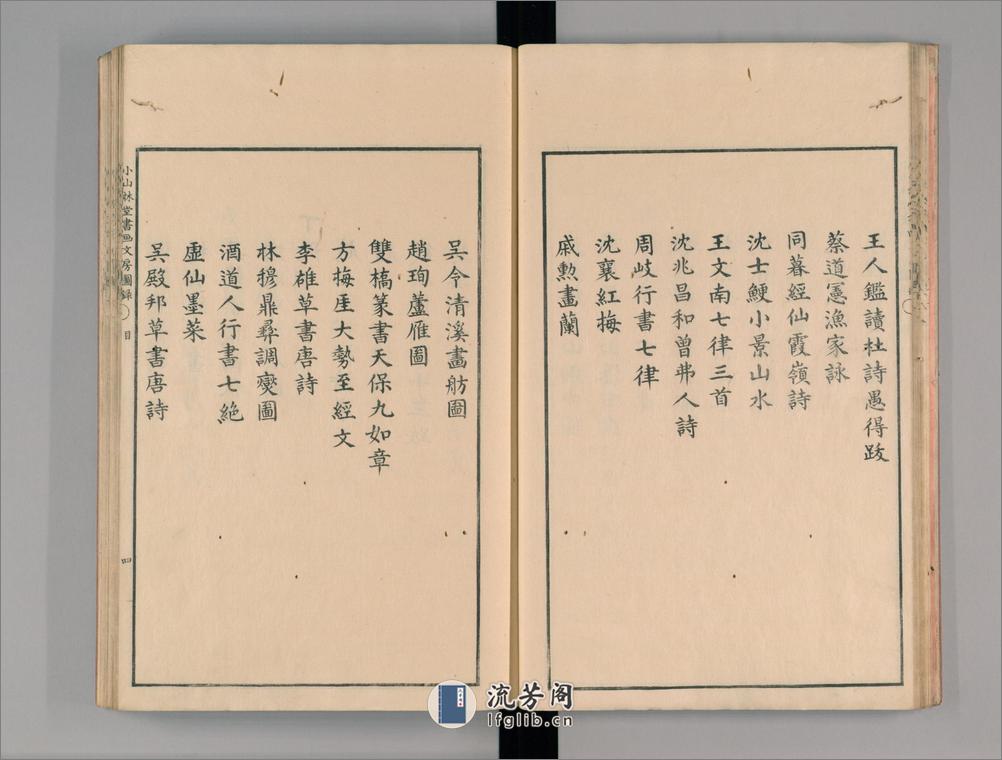 王人鑑讀杜詩愚得跋
蔡道憲漁家詠
同暮經仙霞嶺詩
沈士鯁小景山水
王文南七律三首
沈兆昌和曾弗人詩
周岐行書七律
沈襄紅梅
戚勲畫蘭
吳令清溪畫舫圖
趙珣蘆雁圖
雙橋篆書天保九如章
方梅厓大勢至經文
李雄草書唐詩
林穆鼎彝調燮圖
酒道人行書七絶
虛仙墨菜
吳殿邦草書唐詩
小山林堂書画文房圖錄
目
四
流芳阁
lfglib.cn